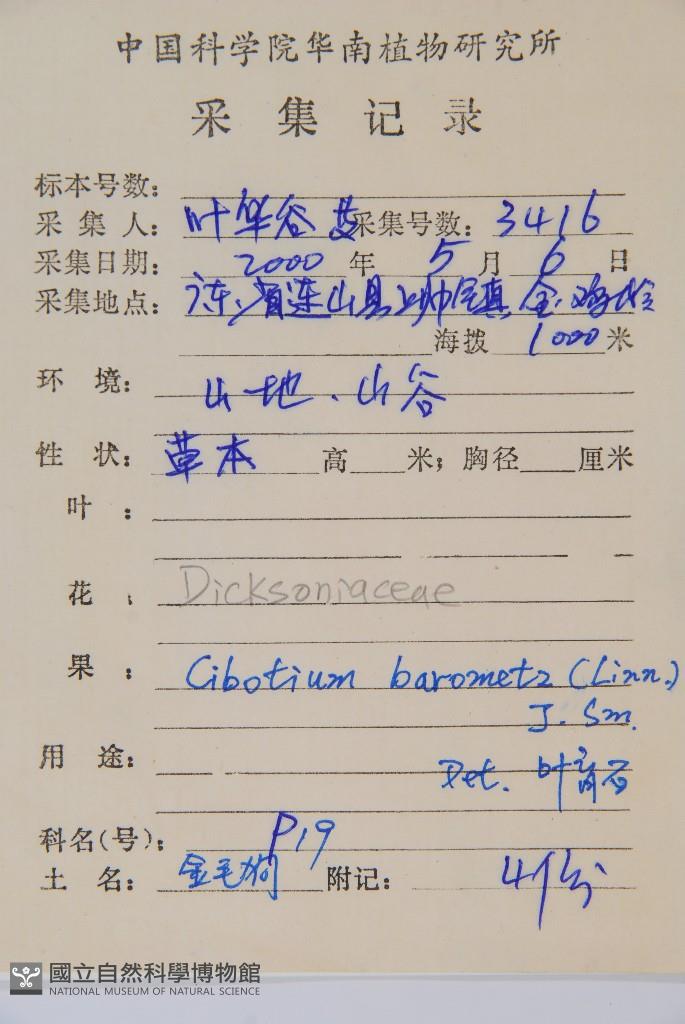 中国科学院华南植物研究所
采集记录
标本号数:
采集人: 叶华谷 采集号数: 3416
采集日期: 2000年5月6日
采集地点: 广东省连山县上帅镇
海拨 1000米
环境: 山地、山谷
性状: 草本 高 米; 胸径 厘米
叶:
花: Dicksoniaceae
果: Cibotium barometz (Linn.)
J. Sm.
用途:
Det. 叶育石
科名(号): P19
土名: 金毛狗 附记: 4份
國立自然科學博物館
NATIONAL MUSEUM OF NATURAL SCIENCE